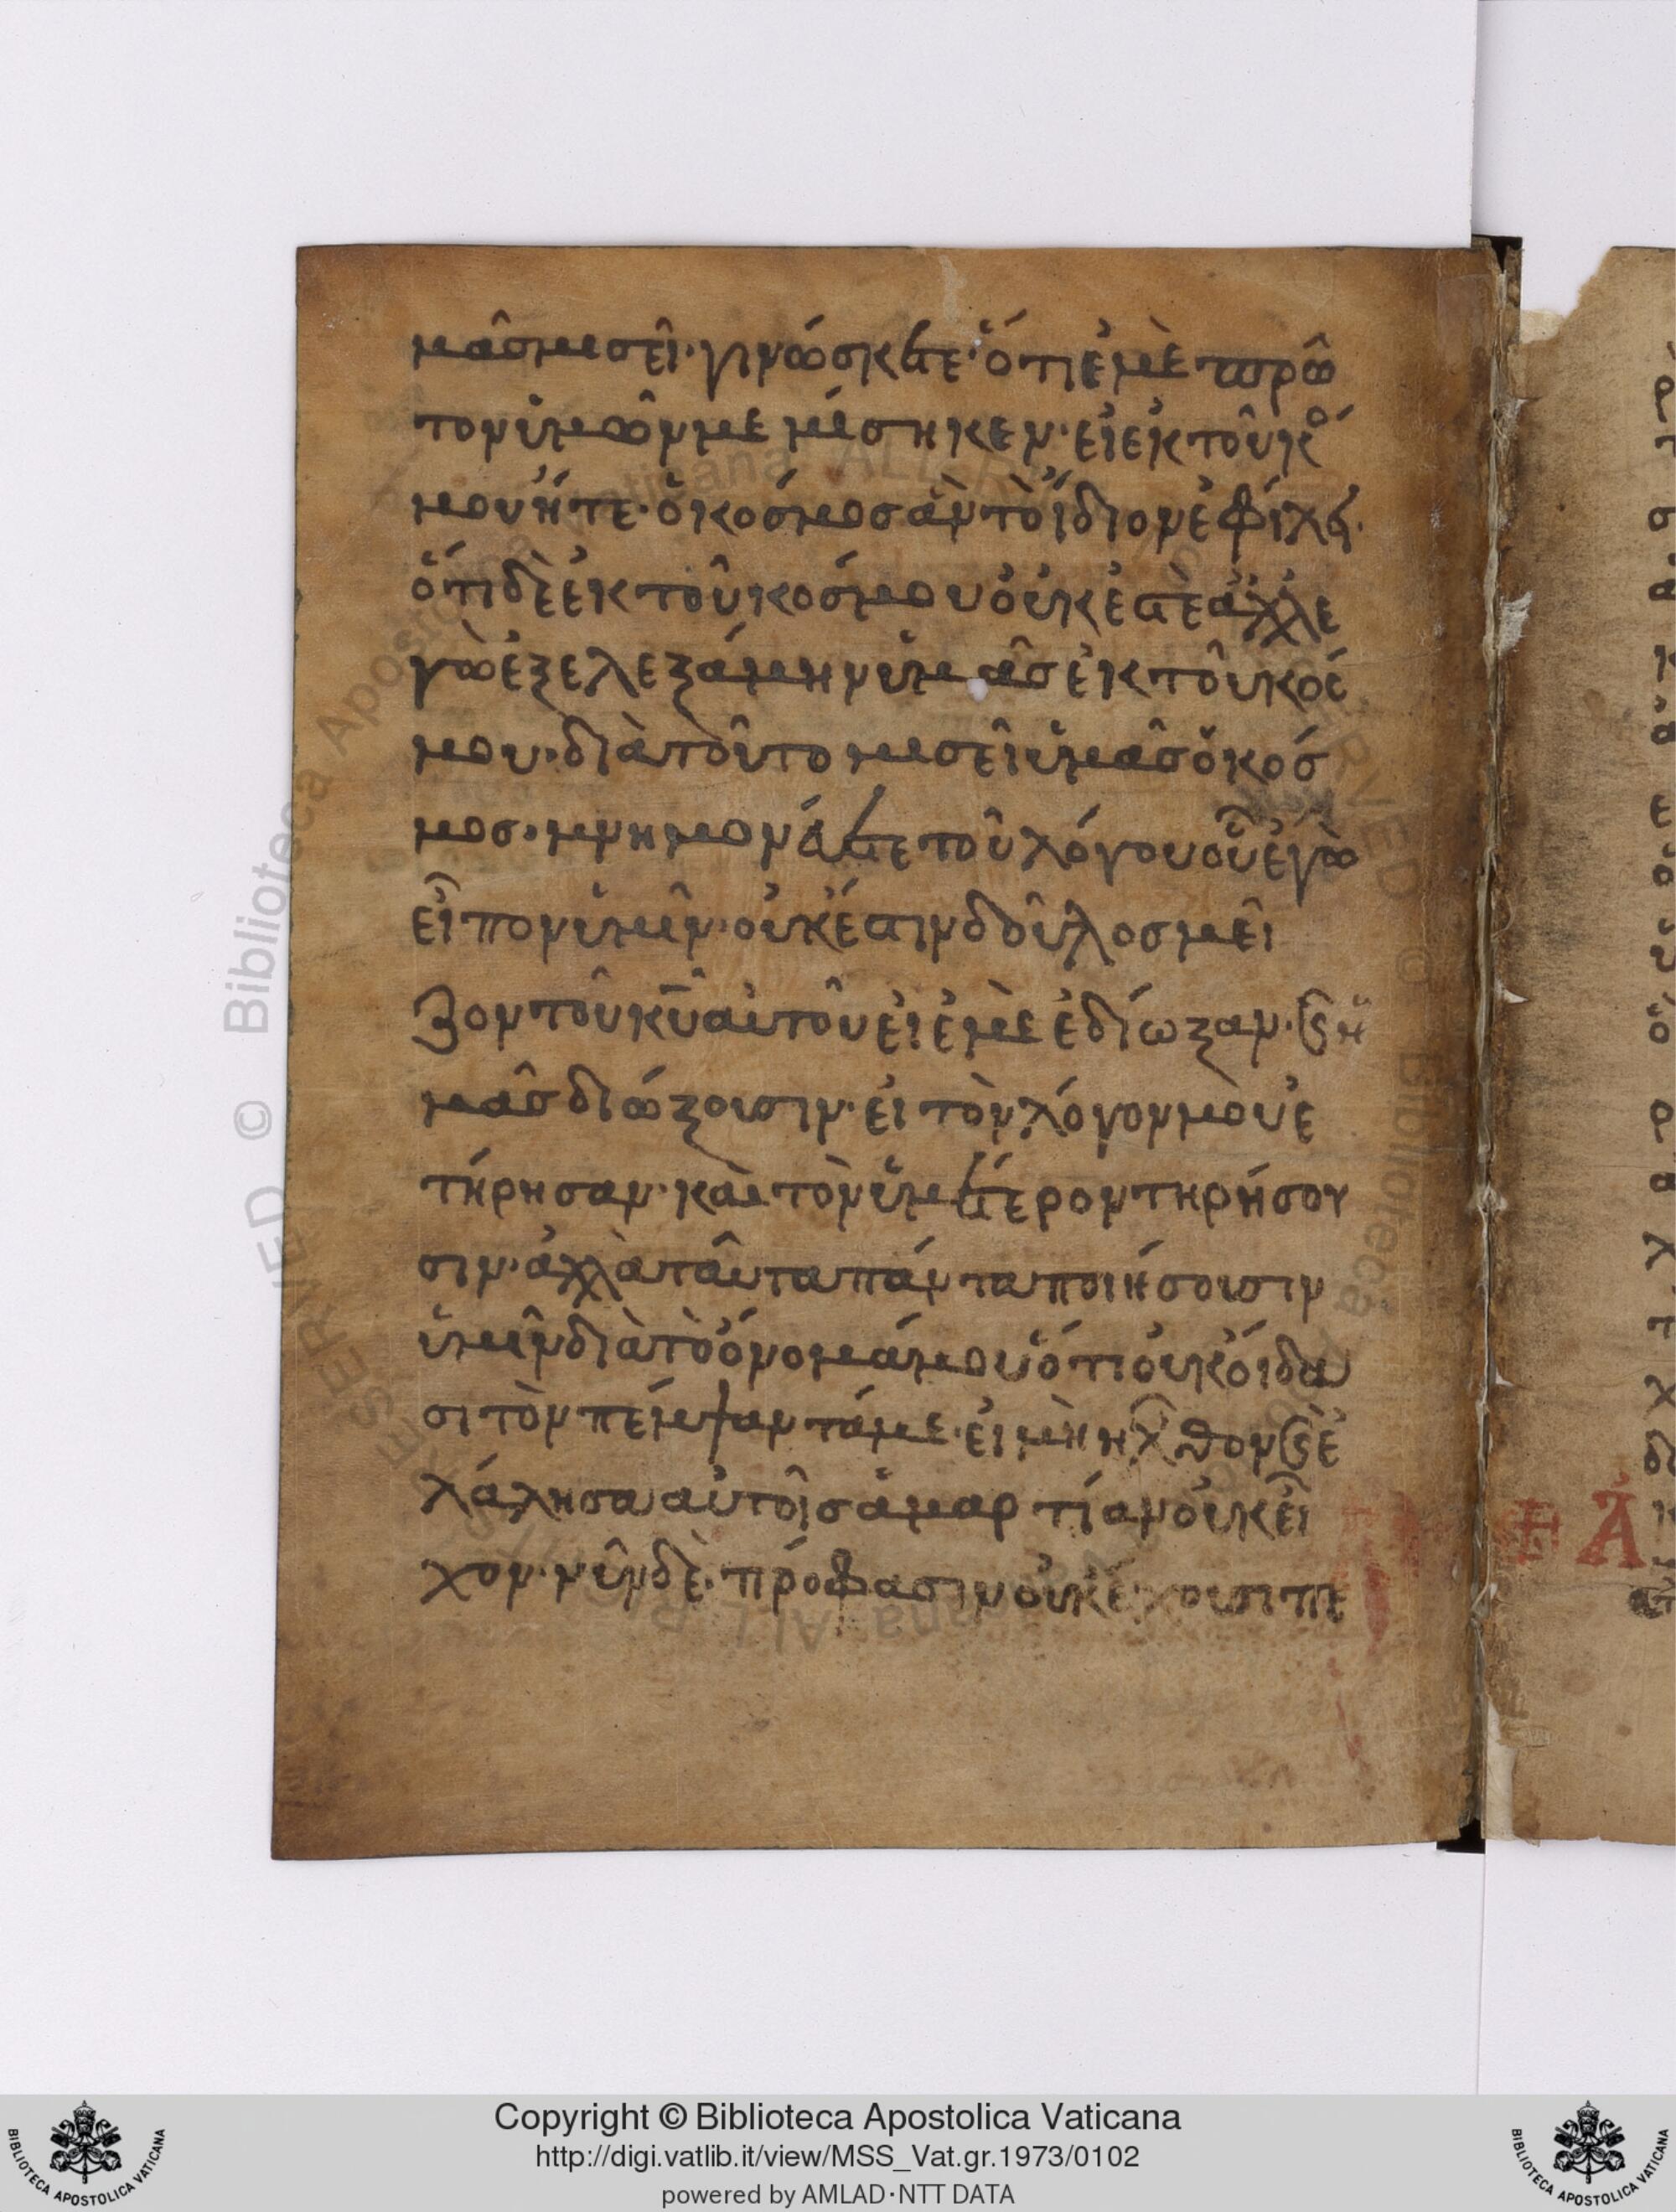 μᾶς μισεῖ· γινώσκετε· ὅτι ἐμὲ πρῶ
τον ὑμῶν μεμίσηκεν· εἰ ἐκ τοῦ κό
μου ἦτε· ὁ κόσμος ἂν τὸ ἴδιον ἐφίλει·
ὅτι δὲ ἐκ τοῦ κόσμου οὐκ ἐστὲ ἀλλ' ἐ
γὼ ἐξελεξάμην ὑμᾶς ἐκ τοῦ κόσ
μου· διὰ τοῦτο μισεῖ ὑμᾶς ὁ κόσ
μος· μνημονεύετε τοῦ λόγου οὗ ἐγὼ
εἶπον ὑμῖν· οὐκ ἔστιν δοῦλος μεί
ζον τοῦ κ̅υ̅ αὐτοῦ εἰ ἐμὲ ἐδίωξαν· καὶ ὑ
μᾶς διώξουσιν· εἰ τὸν λόγον μου ἐ
τήρησαν· καὶ τὸν ὑμέτερον τηρήσου
σιν· ἀλλὰ ταῦτα πάντα ποιήσουσιν
ὑμῖν διὰ τὸ ὄνομά μου ὅτι οὐκ οἴδα
σι τὸν πέμψαντά με· εἰ μὴ ἦλθον καὶ ἐ
λάλησα αὐτοῖς ἁμαρτίαν οὐκ εἶ
χον· νῦν δὲ· πρόφασιν οὐκ ἔχουσι πε
Copyright © Biblioteca Apostolica Vaticana
http://digi.vatlib.it/view/MSS_Vat.gr.1973/0102
powered by AMLAD·NTT DATA